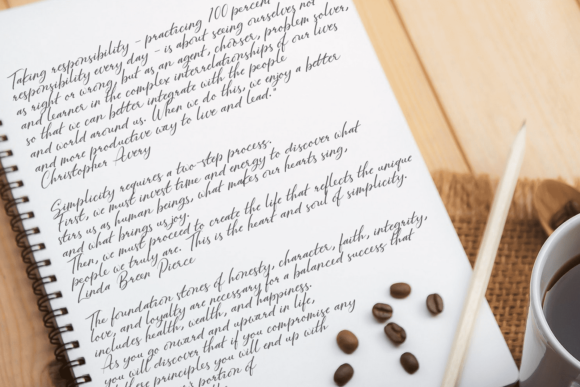 Taking responsibility - practicing 100 percent
responsibility every day - is about seeing ourselves not
as right or wrong, but as an agent, chooser, problem solver,
and learner in the complex interrelationships of our lives
so that we can better integrate with the people
and world around us. When we do this, we enjoy a better
and more productive way to live and lead."
Christopher Avery
Simplicity requires a two-step process.
First, we must invest time and energy to discover what
stirs us as human beings, what makes our hearts sing,
and what brings us joy.
Then, we must proceed to create the life that reflects the unique
people we truly are. This is the heart and soul of simplicity.
Linda Breen Pierce
The foundation stones of honesty, character, faith, integrity,
love, and loyalty are necessary for a balanced success that
includes health, wealth, and happiness.
As you go onward and upward in life,
you will discover that if you compromise any
principles you will end up with
portion of